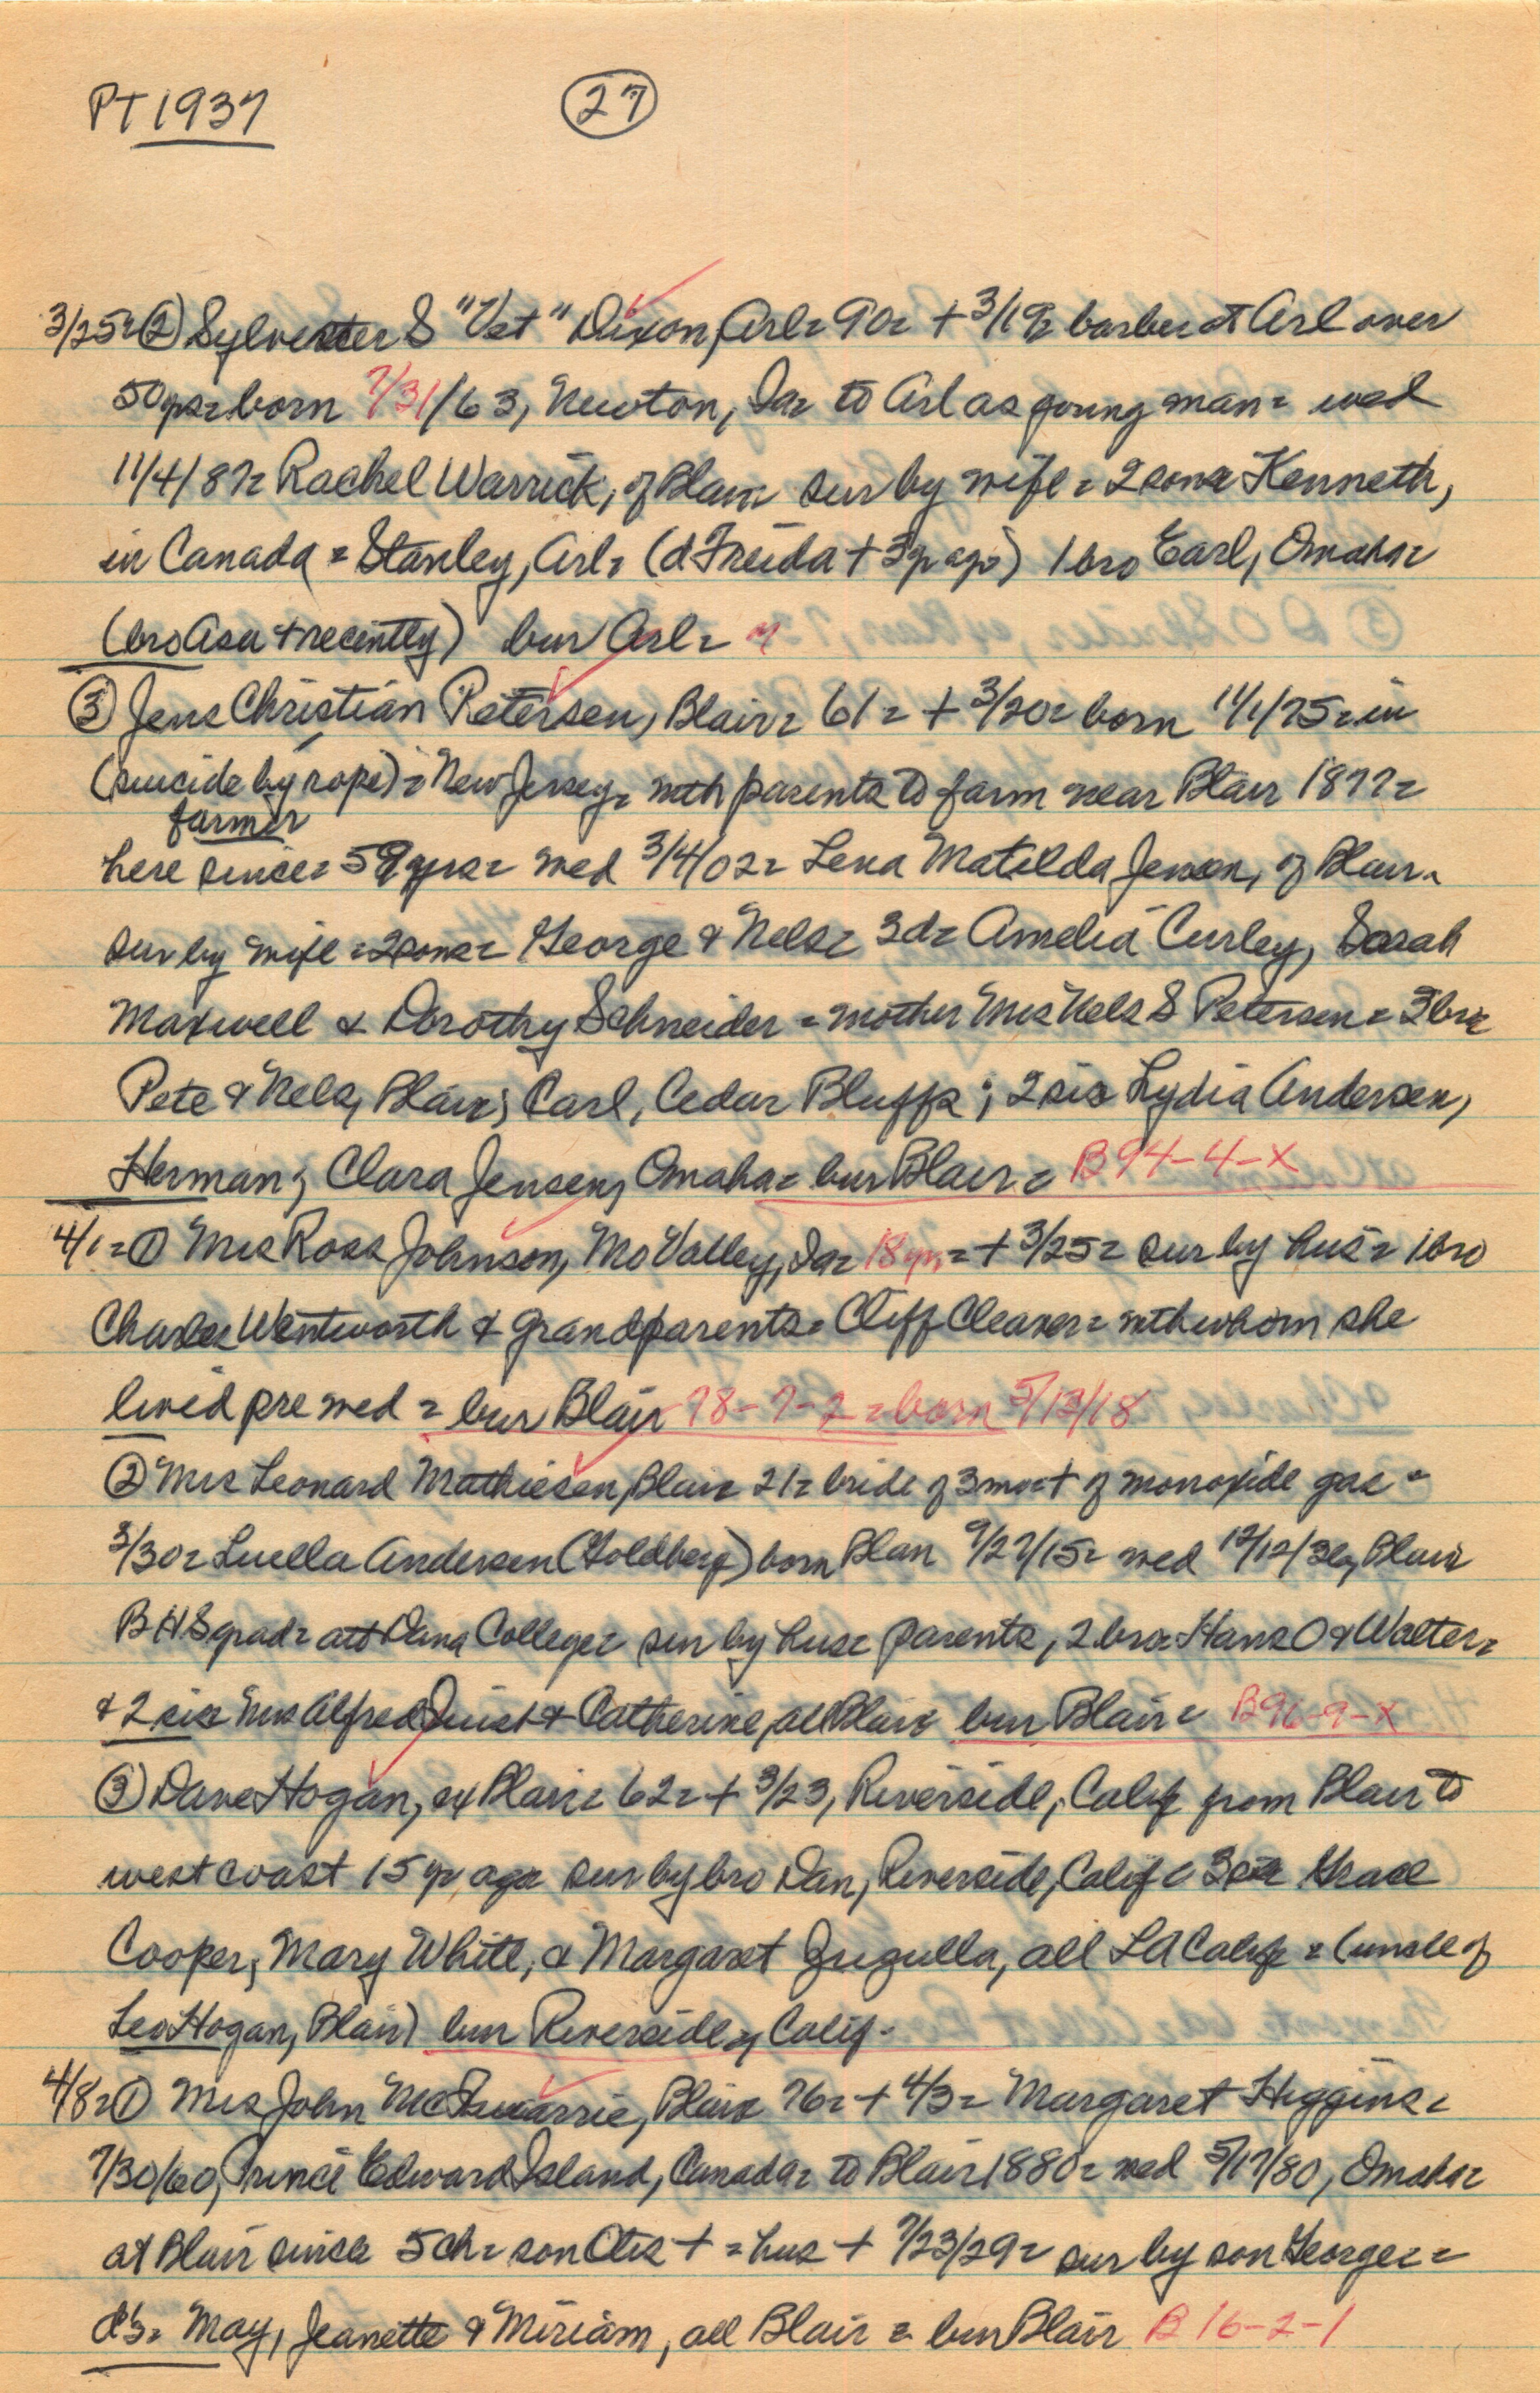 PT 1937
27
3/25= ② Sylvester S "Vet" Dixon, Arl= 90= + 3/19= barber at Arl over
50 yrs= born 7/31/63, Newton, Ia= to Arl as young man= wed
11/4/87= Rachel Warrick, of Blair sur by wife = 2 sons Kenneth,
in Canada = Stanley, Arl= (d Freida + 3 yr ago) 1 bro Earl, Omaha=
(bro Asa + recently) bur Arl=
③ Jens Christian Petersen, Blair= 61= + 3/20= born 11/1/75= in
(suicide by rope) = New Jersey= with parents to farm near Blair 1877=
farmer
here since= 59 yrs= wed 3/4/02= Lena Matilda Jensen, of Blair=
sur by wife = 2 sons= George & Nels= 3 d= Amelia Curley, Sarah
Maxwell & Dorothy Schneider = mother Mrs Nels S Petersen = 3 bro=
Pete & Nels, Blair; Carl, Cedar Bluffs; 2 sis Lydia Andersen,
Herman; Clara Jensen, Omaha= bur Blair= B94-4-X
4/1= ① Mrs Ross Johnson, Mo Valley, Ia= 18 yrs = + 3/25= sur by hus = 1 bro
Charles Wentworth & grandparents= Cliff Cleaver= with whom she
lived pre wed = bur Blair 78-7-2 = born 5/13/18
② Mrs Leonard Mathiesen, Blair 21= bride of 3 mo= + of monoxide gas =
3/30= Luella Andersen (Goldberg) born Blair 9/27/15= wed 12/12/36, Blair
BHS grad= att Dana College= sur by hus= parents, 2 bro= Hans O & Walter=
& 2 sis Mrs Alfred Quist & Catherine, all Blair bur Blair= B96-9-X
③ Dave Hogan, ex Blair= 62= + 3/23, Riverside, Calif from Blair to
west coast 15 yr ago= sur by bro Dan, Riverside, Calif = 3 sis Grace
Cooper, Mary White, & Margaret Zuzulla, all LA Calif = (uncle of
Leo Hogan, Blair) bur Riverside, Calif.
4/8= ① Mrs John McQuarrie, Blair 76= + 4/3= Margaret Higgins=
7/30/60, Prince Edward Island, Canada= to Blair 1880= wed 5/17/80, Omaha=
at Blair since 5 ch= son Otis + = hus + 7/23/29= sur by son George= =
d's= May, Jeanette & Miriam, all Blair = bur Blair B 16-2-1